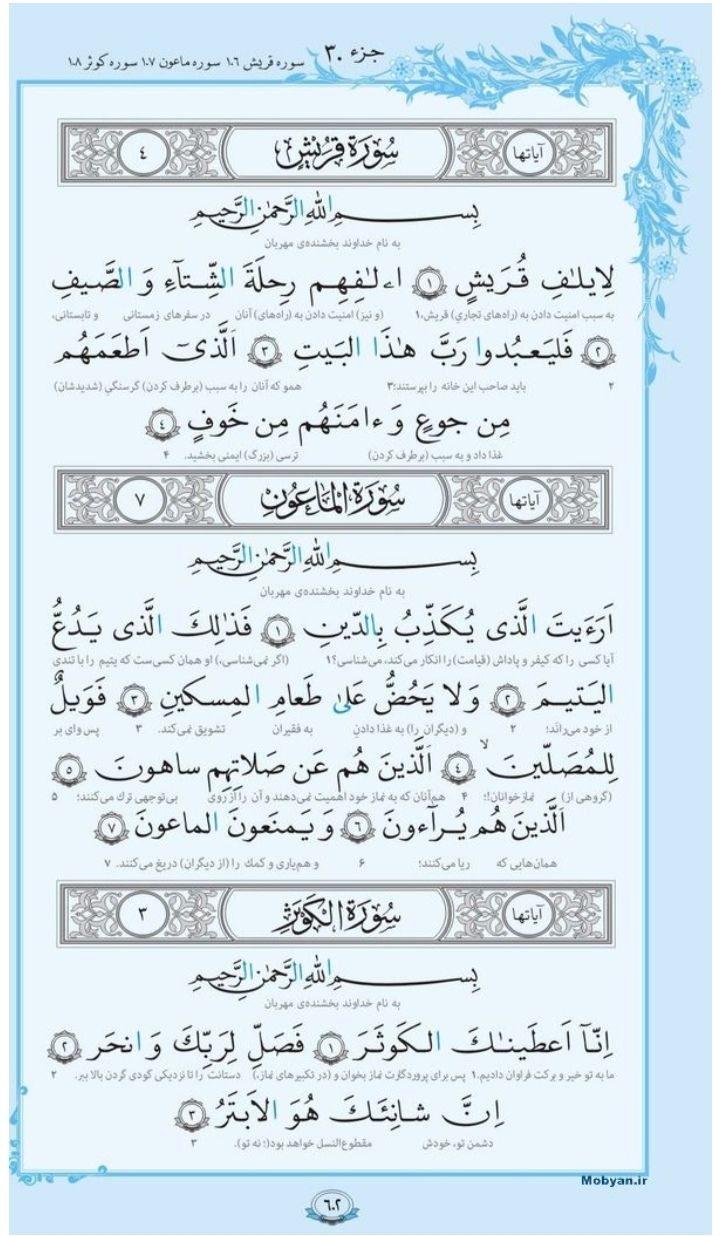 جزء ۳۰ سوره قریش ۱۰۶ سوره ماعون ۱۰۷ سوره کوثر ۱۰۸
آیاتها سُورَة قُرَيْشٍ ٤
بِسمِ اللهِ الرَّحمٰنِ الرَّحيمِ
به نام خداوند بخشنده‌ی مهربان
لِايلٰفِ قُرَيشٍ ۱ اۦلٰفِهِم رِحلَةَ الشِّتآءِ وَ الصَّيفِ
به سبب امنیت دادن به (راه‌های تجاری) قریش،۱ (و نیز) امنیت دادن به (راه‌های) آنان در سفرهای زمستانی و تابستانی،
۲ فَليَعبُدوا رَبَّ هٰذَا البَيتِ ۳ اَلَّذىٓ اَطعَمَهُم
۲ باید صاحب این خانه را بپرستند؛۳ همو که آنان را به سبب (برطرف کردن) گرسنگیِ (شدیدشان)
مِن جوعٍ وَ ءامَنَهُم مِن خَوفٍ ٤
غذا داد و به سبب (برطرف کردن) ترسی (بزرگ) ایمنی بخشید. ۴
آیاتها سُورَة المَاعُونِ ۷
بِسمِ اللهِ الرَّحمٰنِ الرَّحيمِ
به نام خداوند بخشنده‌ی مهربان
اَرَءَيتَ الَّذى يُكَذِّبُ بِالدّينِ ۱ فَذٰلِكَ الَّذى يَدُعُّ
آیا کسی را که کیفر و پاداش (قیامت) را انکار می‌کند، می‌شناسی؟۱ (اگر نمی‌شناسی،) او همان کسی‌ست که یتیم را با تندی
اليَتيمَ ۲ وَلا يَحُضُّ عَلىٰ طَعامِ المِسكينِ ۳ فَوَيلٌ
از خود می‌راند؛ ۲ و (دیگران را) به غذا دادنِ به فقیران تشویق نمی‌کند. ۳ پس وای بر
لِلمُصَلّينَ ۙ ٤ اَلَّذينَ هُم عَن صَلاتِهِم ساهونَ ۵
(گروهی از) نمازخوانان!؛ ۴ هم‌آنان که به نماز خود اهمیت نمی‌دهند و آن را از روی بی‌توجهی ترک می‌کنند؛ ۵
اَلَّذينَ هُم يُرآءونَ ۶ وَ يَمنَعونَ الماعونَ ۷
همان‌هایی که ریا می‌کنند؛ ۶ و هم‌یاری و کمک را (از دیگران) دریغ می‌کنند. ۷
آیاتها سُورَة الكَوثَرِ ۳
بِسمِ اللهِ الرَّحمٰنِ الرَّحيمِ
به نام خداوند بخشنده‌ی مهربان
اِنّآ اَعطَينٰكَ الكَوثَرَ ۱ فَصَلِّ لِرَبِّكَ وَ انحَر ۲
ما به تو خیر و برکت فراوان دادیم.۱ پس برای پروردگارت نماز بخوان و (در تکبیرهای نماز،) دستانت را تا نزدیکی گودی گردن بالا ببر. ۲
اِنَّ شانِئَكَ هُوَ الاَبتَرُ ۳
دشمن تو، خودش مقطوع‌النسل خواهد بود(؛ نه تو). ۳
Mobyan.ir
۶۰۲